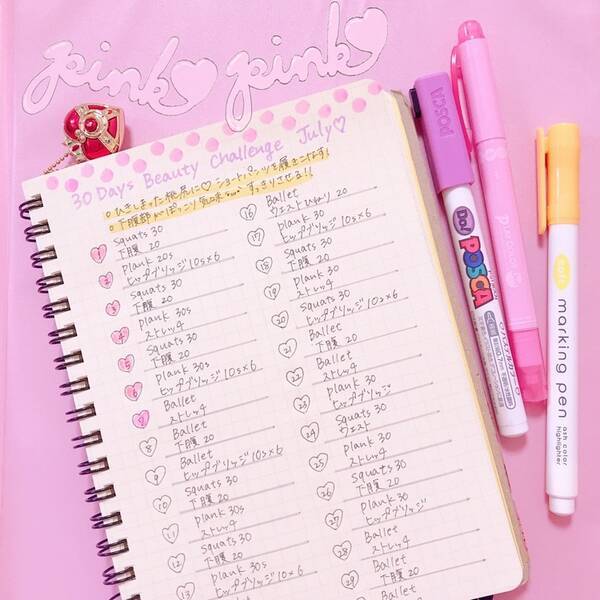 pink pink
30 Days Beauty Challenge July
ひきしまった桃尻に♡ショートパンツを履きこなす!
下腹部がぽっこり気味… すっきりさせる!!
1
Squats 30
下腹 20
2
Plank 20s
ヒップブリッジ 10s×6
3
Squats 30
下腹 20
4
Plank 30s
ストレッチ
5
Squats 30
下腹 20
6
Plank 30s
ヒップブリッジ 10s×6
7
Ballet
ストレッチ
8
Ballet
下腹 20
9
Ballet
ヒップブリッジ 10s×6
10
Squats 30
下腹 20
11
Plank 30s
ストレッチ
12
Squats 30
下腹 20
13
Plank 30s
ヒップブリッジ 10s×6
16
Ballet
ウエストひねり 20
17
Plank 30
ヒップブリッジ 10s×6
18
Squats 30
下腹 20
19
Plank 30
ストレッチ
20
Squats 30
ヒップブリッジ 10s×6
21
Ballet
下腹 20
22
Ballet
ストレッチ
23
Plank 30
ヒップブリッジ
24
Squats 30
ウエスト
25
Plank 30
ストレッチ
26
Squats 30
下腹 20
27
Plank 30
ヒップブリッジ
28
Ballet
ストレッチ
29
Ballet
下腹 20
Ballet
POSCA
POSCA
marking pen
ash color
highlighter